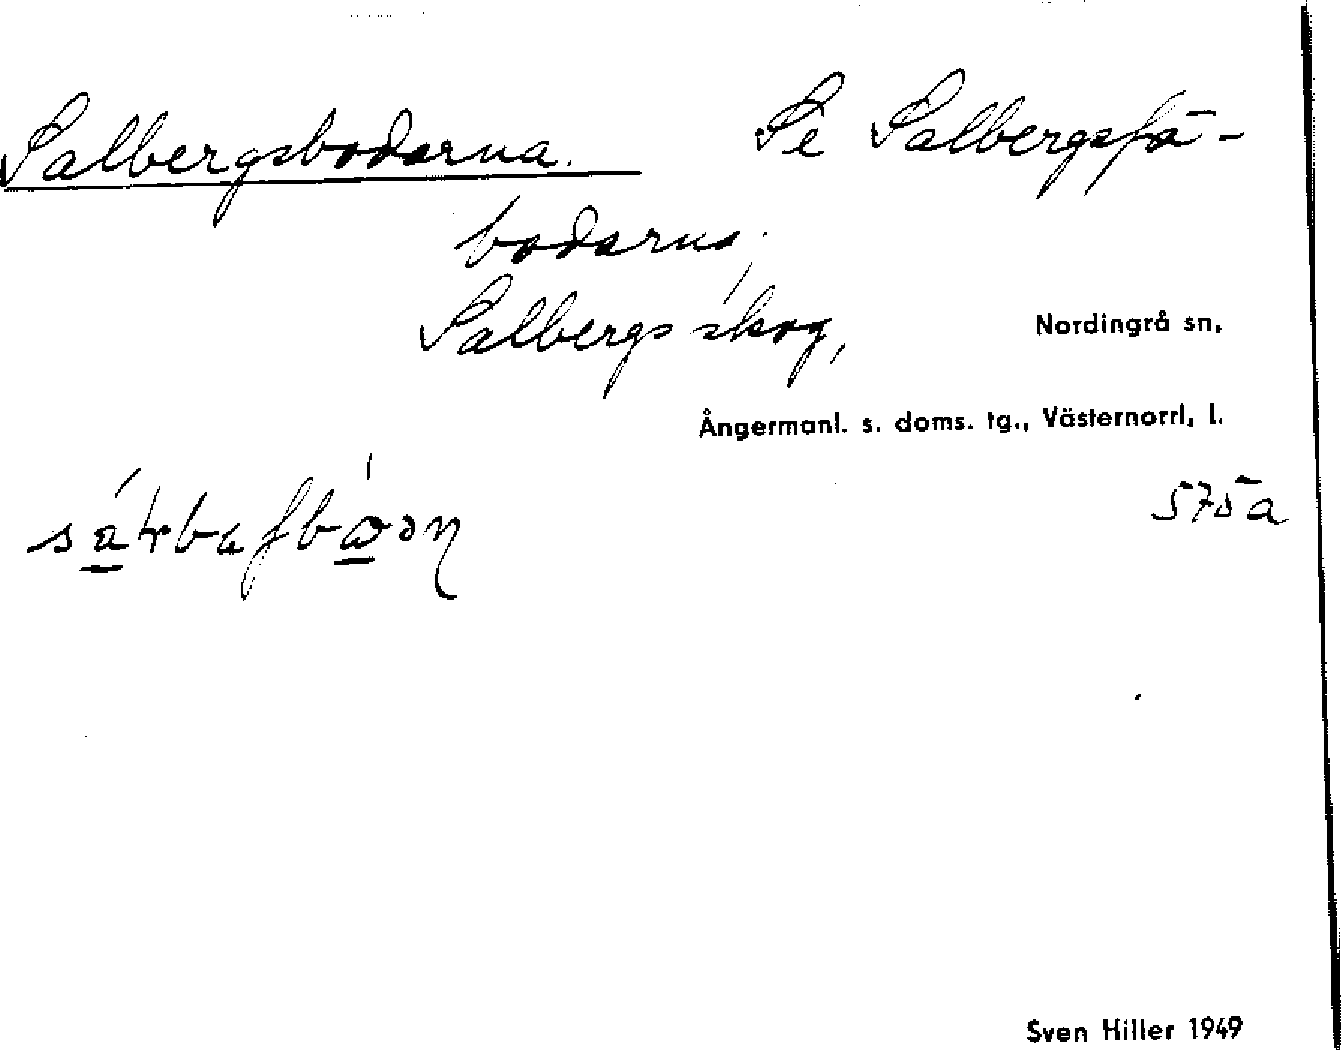 Salbergsbodarna. Se Salbergsfä-
bodarna,
Salbergs skog,
Nordingrå sn,
Ångermanl. s. doms. tg., Västernorrl, l.
575a
Sven Hiller 1949